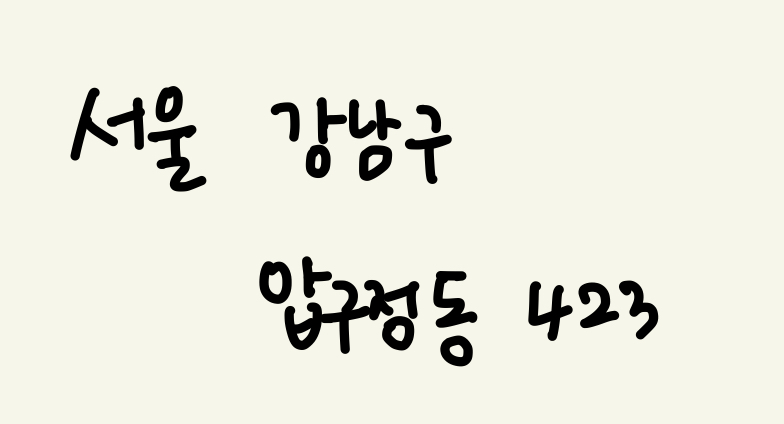 서울 강남구
압구정동 423